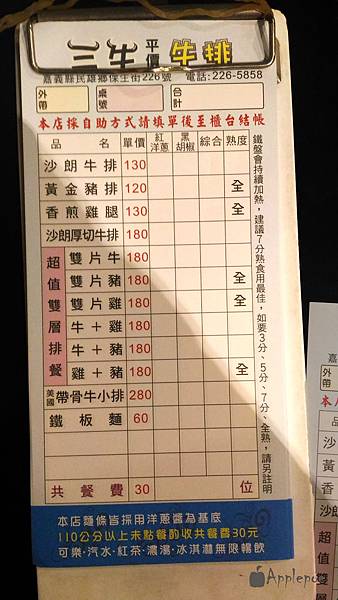 三牛平價牛排
嘉義縣民雄鄉保生街226號 電話:226-5858
外帶 桌號 合計
本店採自助方式請填單後至櫃台結帳
品名 單價 紅洋蔥 黑胡椒 綜合 熟度
沙朗牛排 130
黃金豬排 120 全
香煎雞腿 130 全
沙朗厚切牛排 180
超值雙層排餐
雙片牛 180
雙片豬 180 全
雙片雞 180 全
牛+雞 180
牛+豬 180
雞+豬 180 全
美國帶骨牛小排 280
鐵板麵 60
共餐費 30 位
鐵盤會持續加熱,建議7分熟食用最佳,如要3分、5分、7分、全熟,請另註明
本店麵條皆採用洋蔥醬為基底
110公分以上未點餐酌收共餐費30元
可樂‧汽水‧紅茶‧濃湯‧冰淇淋無限暢飲
嘉
外帶
本
品
沙
黃
香
沙朗
超值雙
Applepig